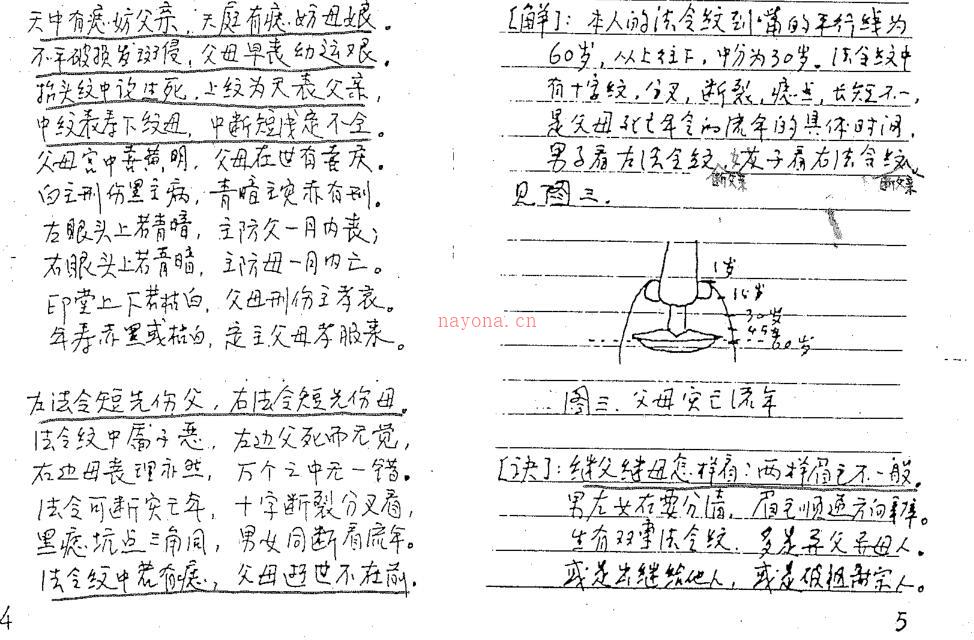 天中有痣妨父亲，天庭有痣妨母娘。
不平破损发斑侵，父母早丧幼这艰。
抬头纹中说生死，上纹为天表父亲，
中纹表寿下纹母，中断短浅定不全。
父母宫中喜黄明，父母在世有喜庆。
白主刑伤黑主病，青暗主灾赤有刑。
左眼头上若青暗，主防父一月内丧；
右眼头上若青暗，主防母一月内亡。
印堂上下若枯白，父母刑伤主孝哀。
年寿赤黑或枯白，定主父母孝服来。
左法令短先伤父，右法令短先伤母。
法令纹中屬子恶，左边父死而无觉，
右边母丧理亦然，万个之中无一错。
法令可断灾亡年，十字断裂分叉看，
黑痣坑点三角同，男女同断看流年。
法令纹中若有痣，父母逝世不在前。
4
[解]：本人的法令纹到嘴的平行线为
60岁，从上往下，中分为30岁。法令纹中
有十字纹，分叉，断裂，痣点，长短不一，
是父母死亡年令的流年的具体时间，
男子看左法令纹 女子看右法令纹
断父亲 断父亲
见图三．
1岁
15岁
30岁
45岁
60岁
nayona.cn
图三．父母灾亡流年
[诀]：继父继母怎样看；两样眉毛不一般。
男左女右要分清，眉毛顺逆方向
生有双重法令纹．多是异父异母人。
或是出继给他人，或是破祖离宗人。
5